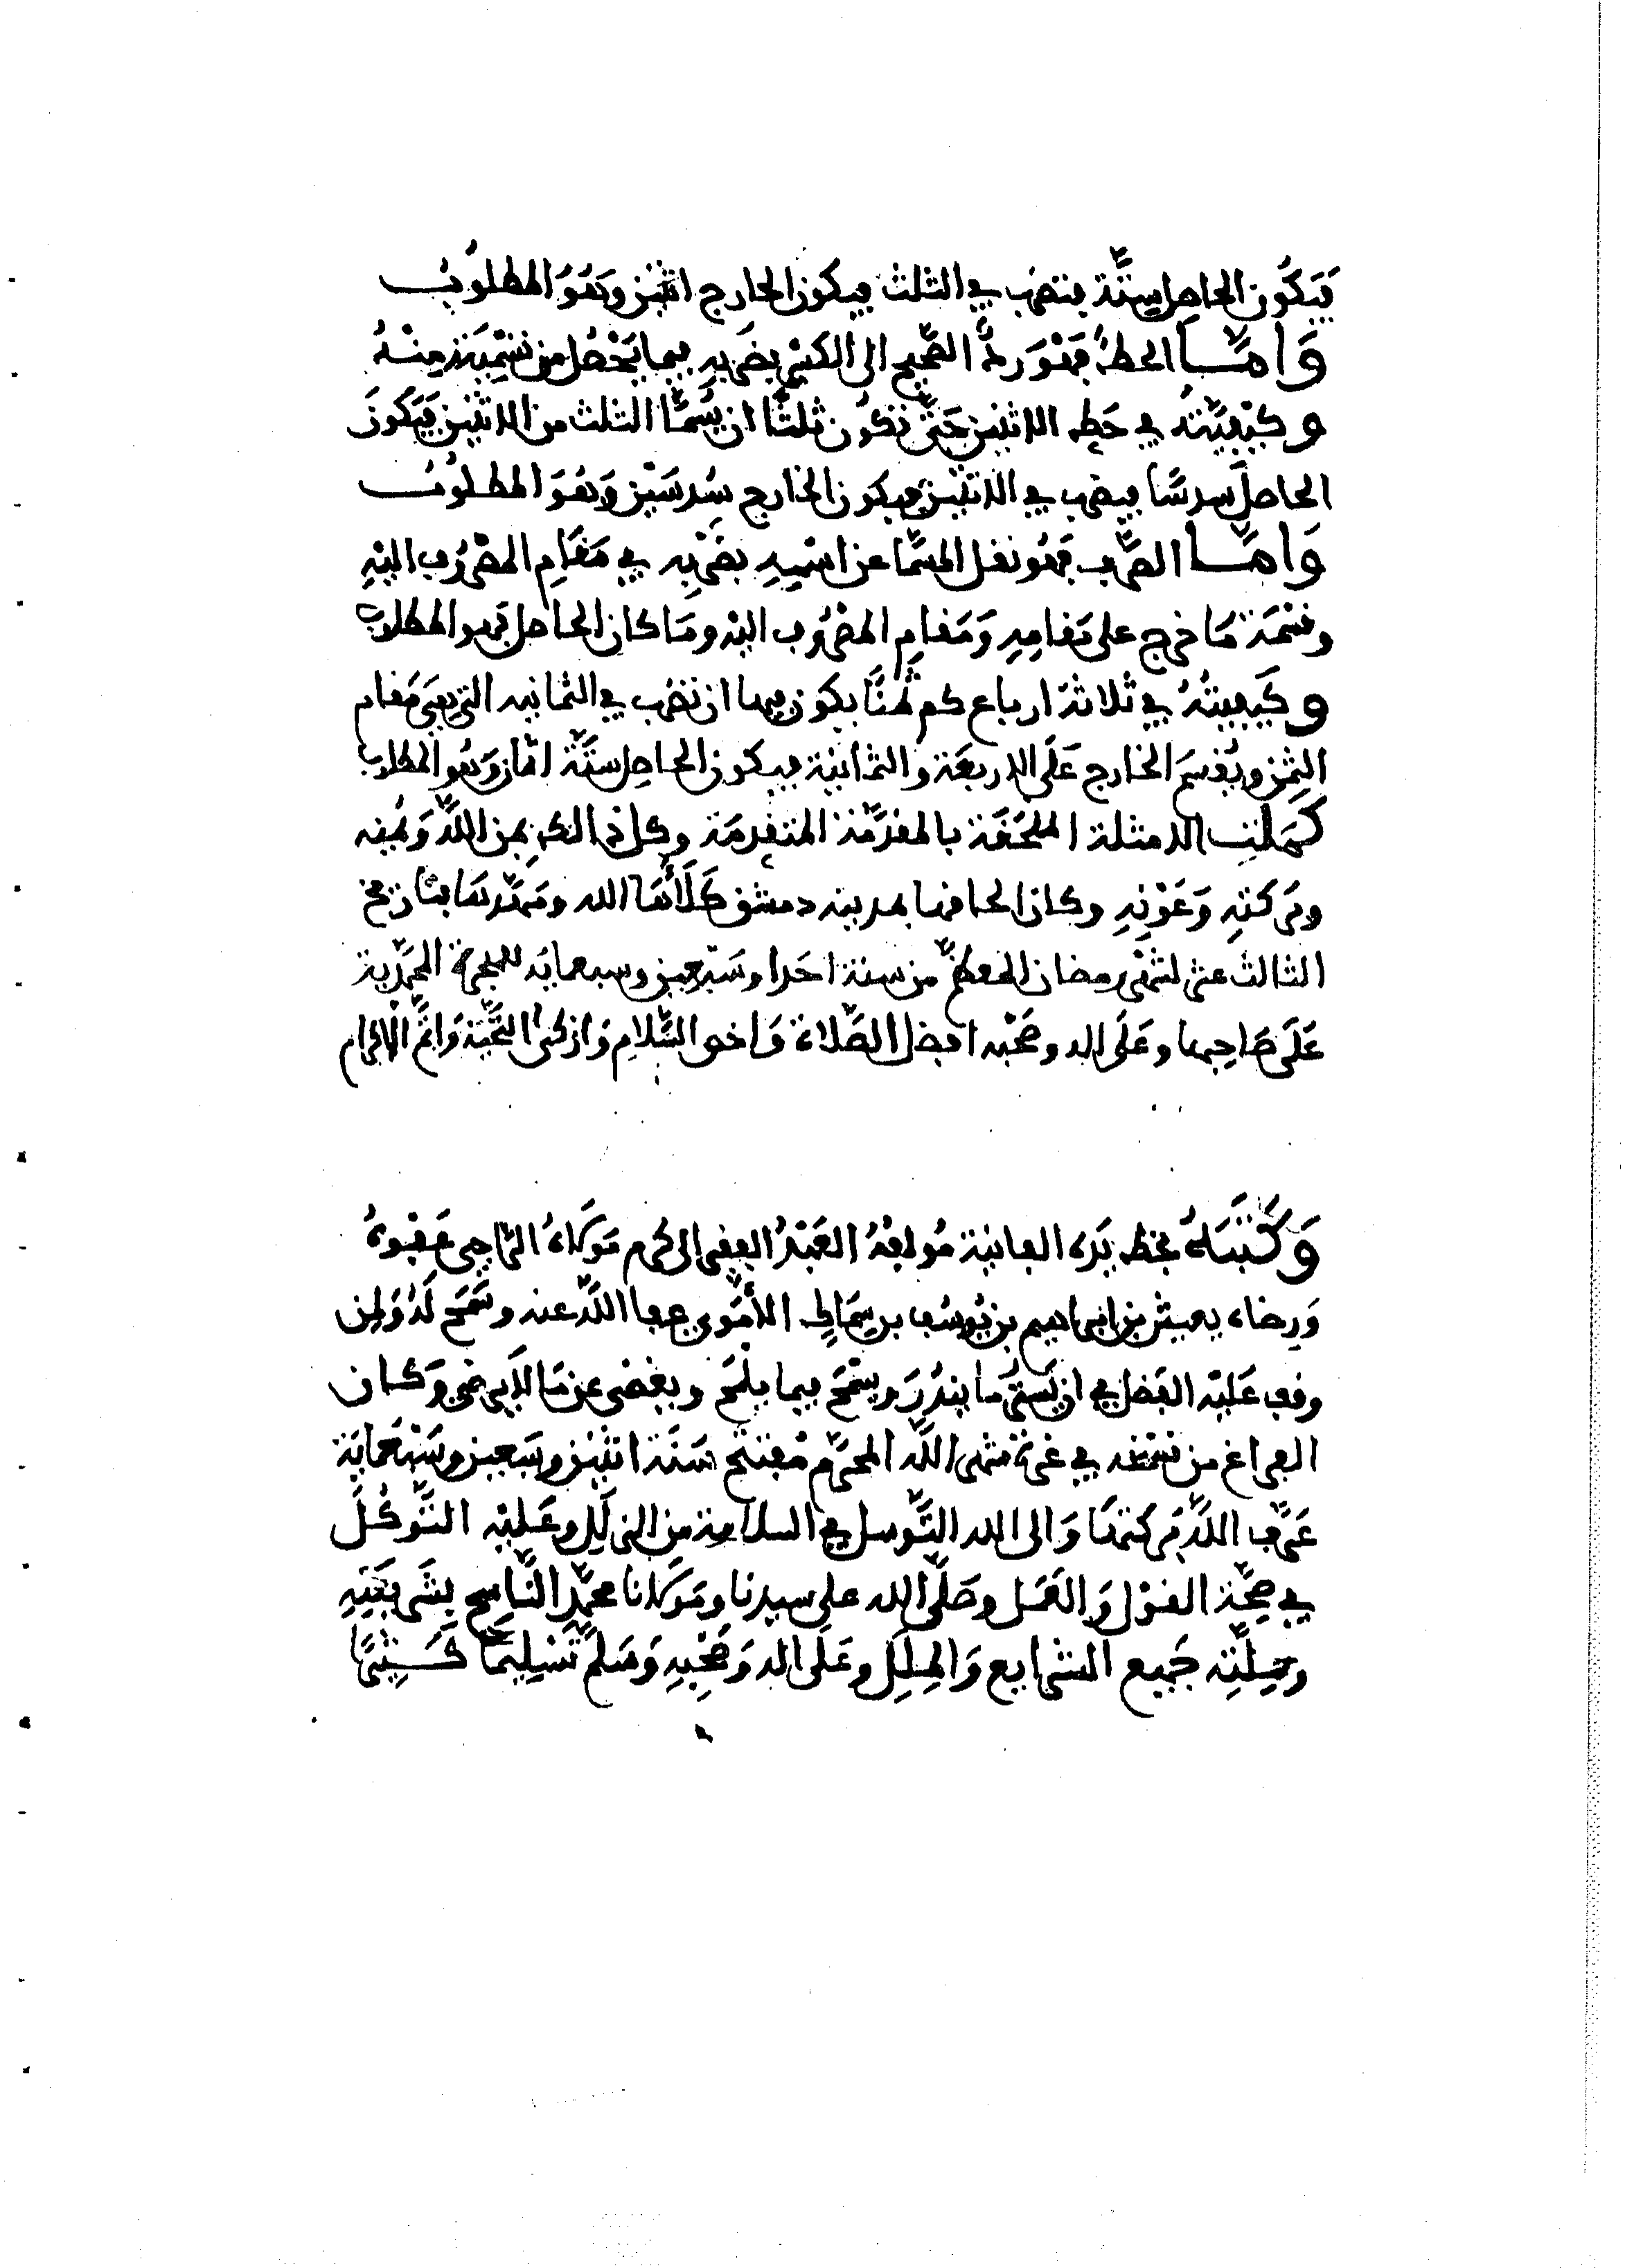 فَيَكُون الحاصل ستَّة فتضرب في الثلث فيكون الخارج اثنين وَهُوَ المطلوب
وَامَّا الحطُّ فَهْوَ ردُّ الصَّحيح الى الكسر بضَربه فيما يَحْصُل من تَسْمِيَته مِنْهُ
وكيْفِيَّتُه في حَطِّ الاثنين حَتَّى تكُون ثلثًا ان يُسَمَّا الثلث من الاثنين فَيَكونَ
الحاصلُ سدسًا فيضرب في الاثنين فيكون الخارج سُدسَيْن وَهُوَ المطلُوبُ
وَامَّا الصَّرف فَهُو نقل المسَمَّا عن اسْمِهِ بضَرْبِه في مَقَامِ المصْرُوف اليْهِ
وقسْمَة مَا خرج على مَقامِهِ وَمَقامِ المصْرُوف اليْه ومَا كان الحاصل فهو المطلوب
وكَيفِيتُهُ في ثلاثة ارباع كم ثُمُنًا يكون فيها ان تضرب في الثمانيه التي هِيَ مَقام
الثمُن ويُقسَم الخارج عَلَى الاربعَة والثمانية فيكون الحاصل ستَّة اثمان وَهُو المطلوب
كَمَلَت الامثلة الملحَقَة بالمقدِّمَة المتقدِمَة وكل ذالك بمن اللَّه وَيُمنه
وبَركتِهِ وَعَوْنِهِ وكان الحاقها بمدينه دمشق كَلَأَهَا الله ومَهَّدهَا بتاريخ
الثالث عشر لشَهْر رمضان المعظَّم من سنة احَدا وسَبْعين وسبعمايَه للهجرة المحمَّدية
عَلَى صَاحِبها وعَلَى اله وصَحْبه افضل الصَّلاة وَاخص السَّلامِ وَازكى التَّحِيَّة وَاتمَّ الاكرام
وَكَتَبَهُ بخط يَده الفانِية مُولفُهُ العَبْدُ الفقير الى كرم مَوْلاهُ الرَّاجي عَفْوهُ
وَرِضاه يعيش بن ابراهيم بن يُوسُف بن سِمَاكٍ الأُمَوي عفا اللَّه عنه وسَمَح لَهُ وَلمن
وقف عَليْه الفَضل في ان يَستُر مَا يندُرَ ويسْمَح فيما يلمَح ويغضى عن مَا لا يرضى وَكان
الفراغ من نسْخه في غرة شهر اللَّه المحرَّم مُفتتح سَنَة اثنَيْن وسَبعين وسَبْعمايَة
عَرَّف اللَّه بَركتهَا وَالى الله التَّوسل في السلامة من الزلَل وعَليْه التَّوكُلُ
في صِحَّة القوْل وَالعَمَل وصَلَّى الله على سيدنا ومَوْلانا محمَّدٍ النَّاسخ بِشَريعَتِهِ
ومِلَّتِه جَميع الشرايع وَالمِلَلِ وعَلَى اله وَصَحْبِهِ وَسَلَّم تَسْلِيمًا كَثِيرًا